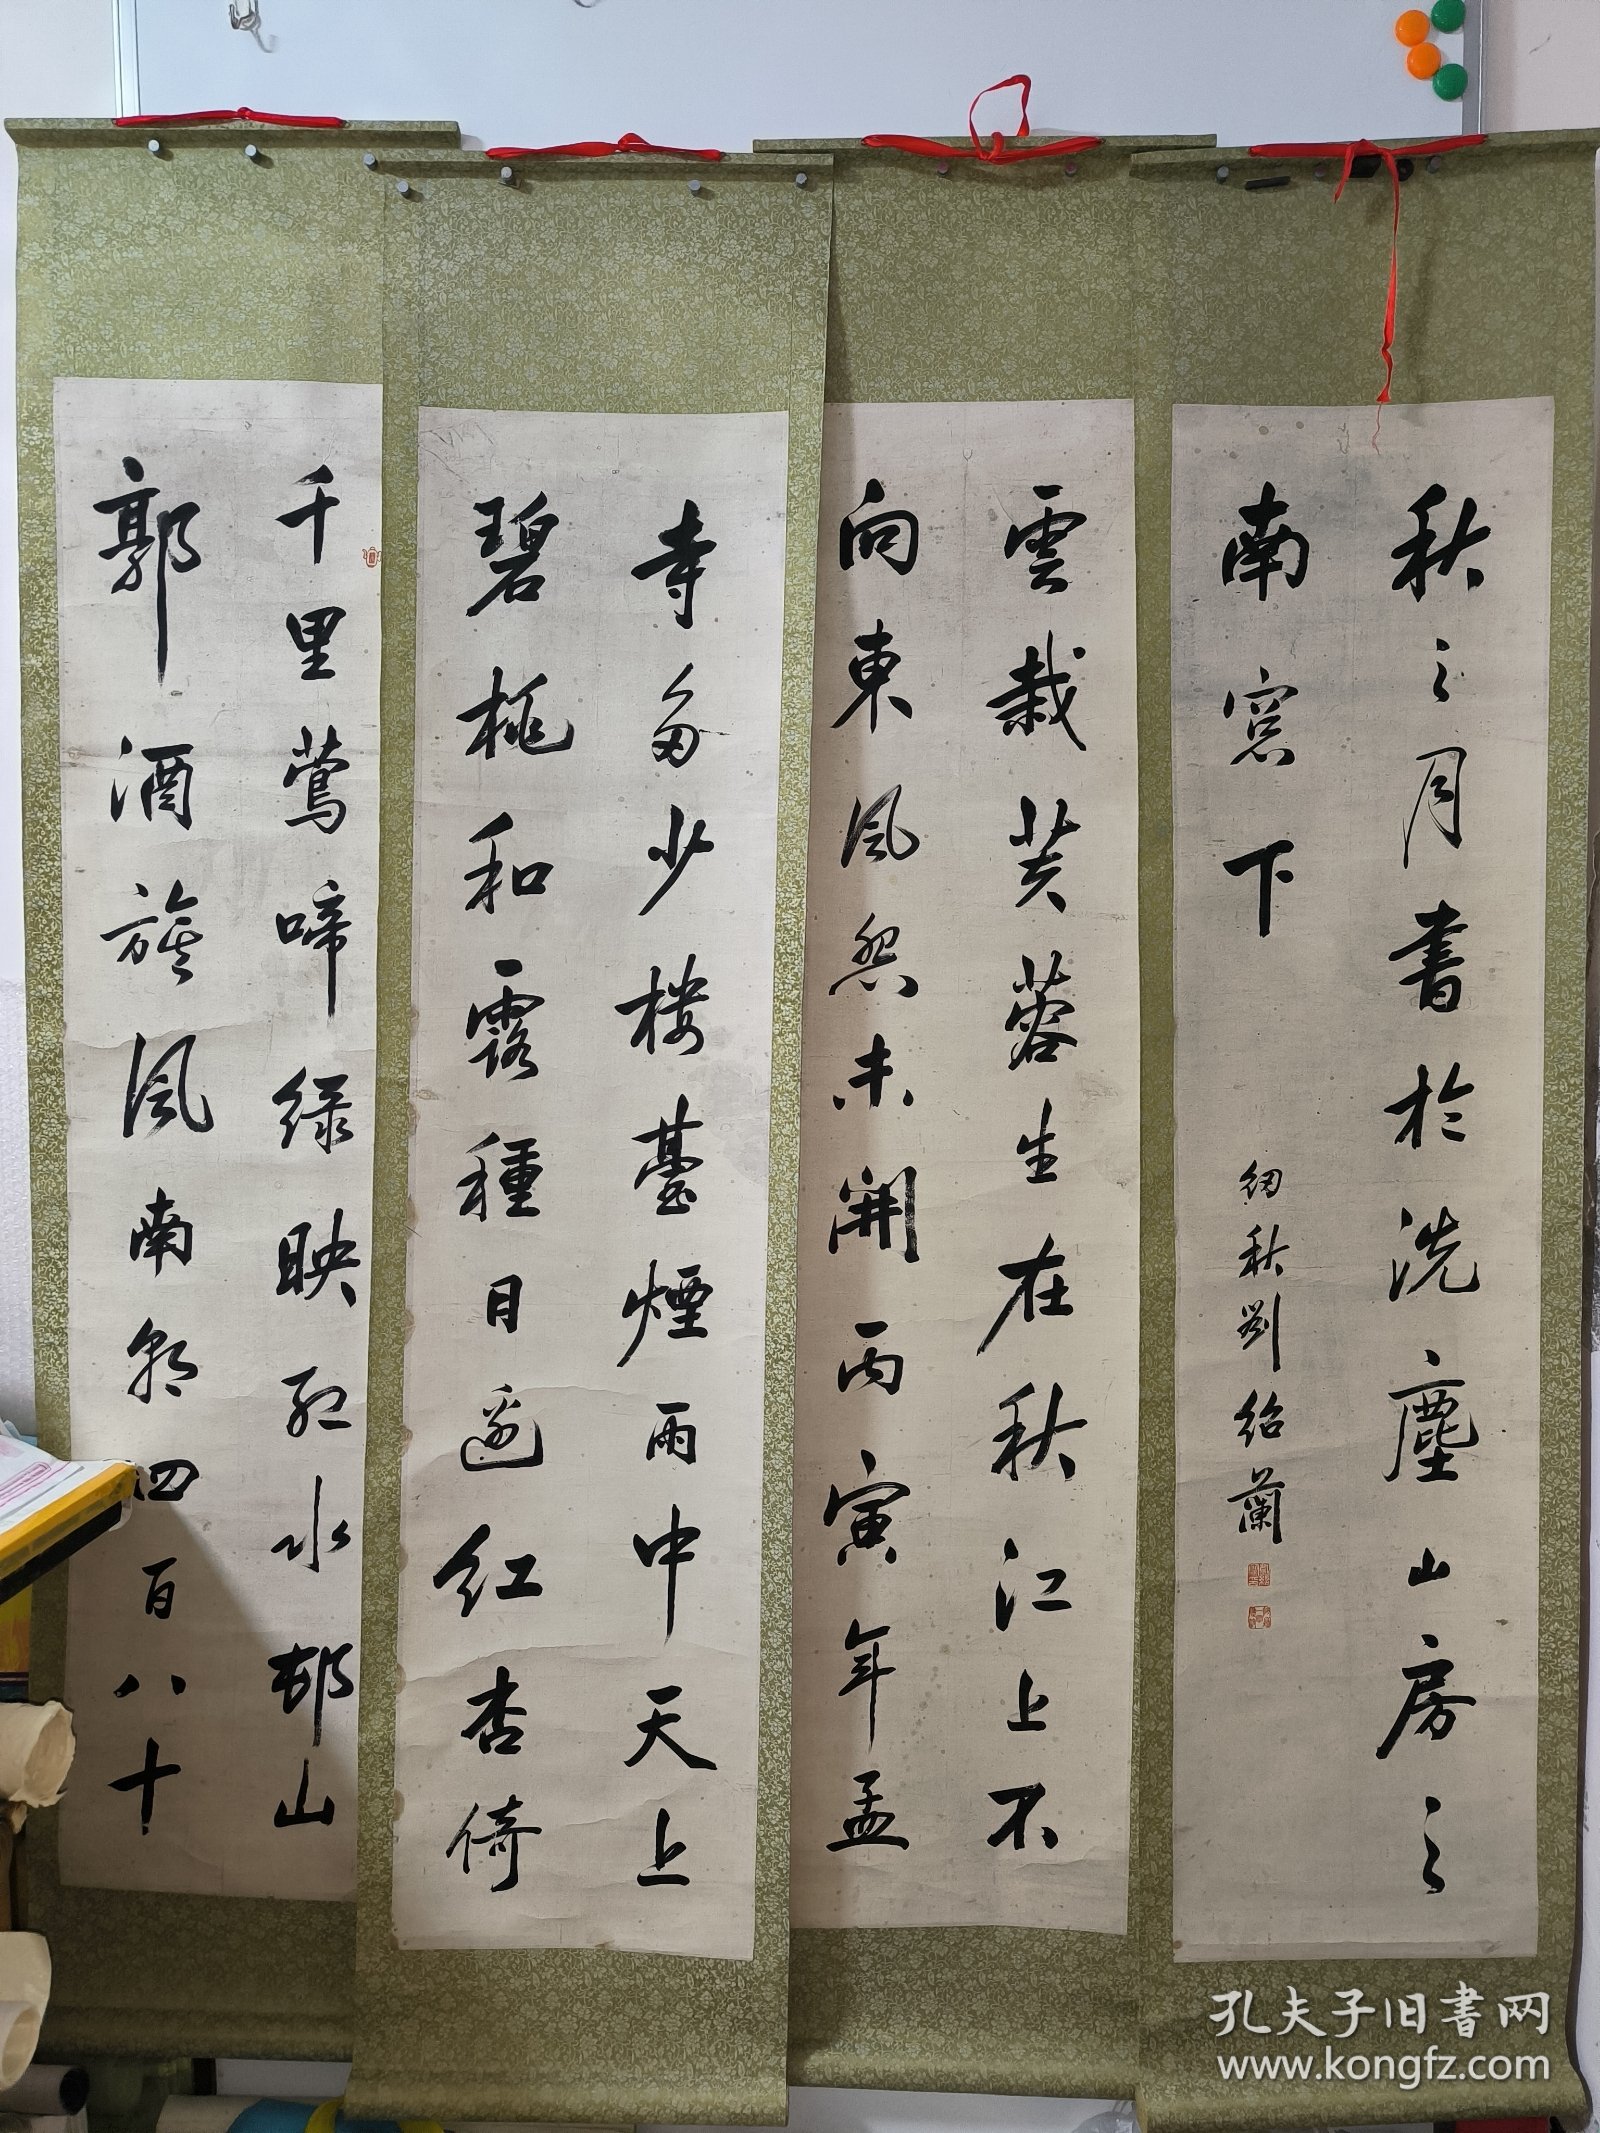 千里鶯啼綠映紅水邨山
郭酒旗風南朝四百八十
寺多少樓臺煙雨中天上
碧桃和露種日邊紅杏倚
雲栽芙蓉生在秋江上不
向東風怨未開丙寅年孟
秋之月書於洗塵山房之
南窓下
紉秋劉紹蘭
孔夫子旧書网
www.kongfz.com